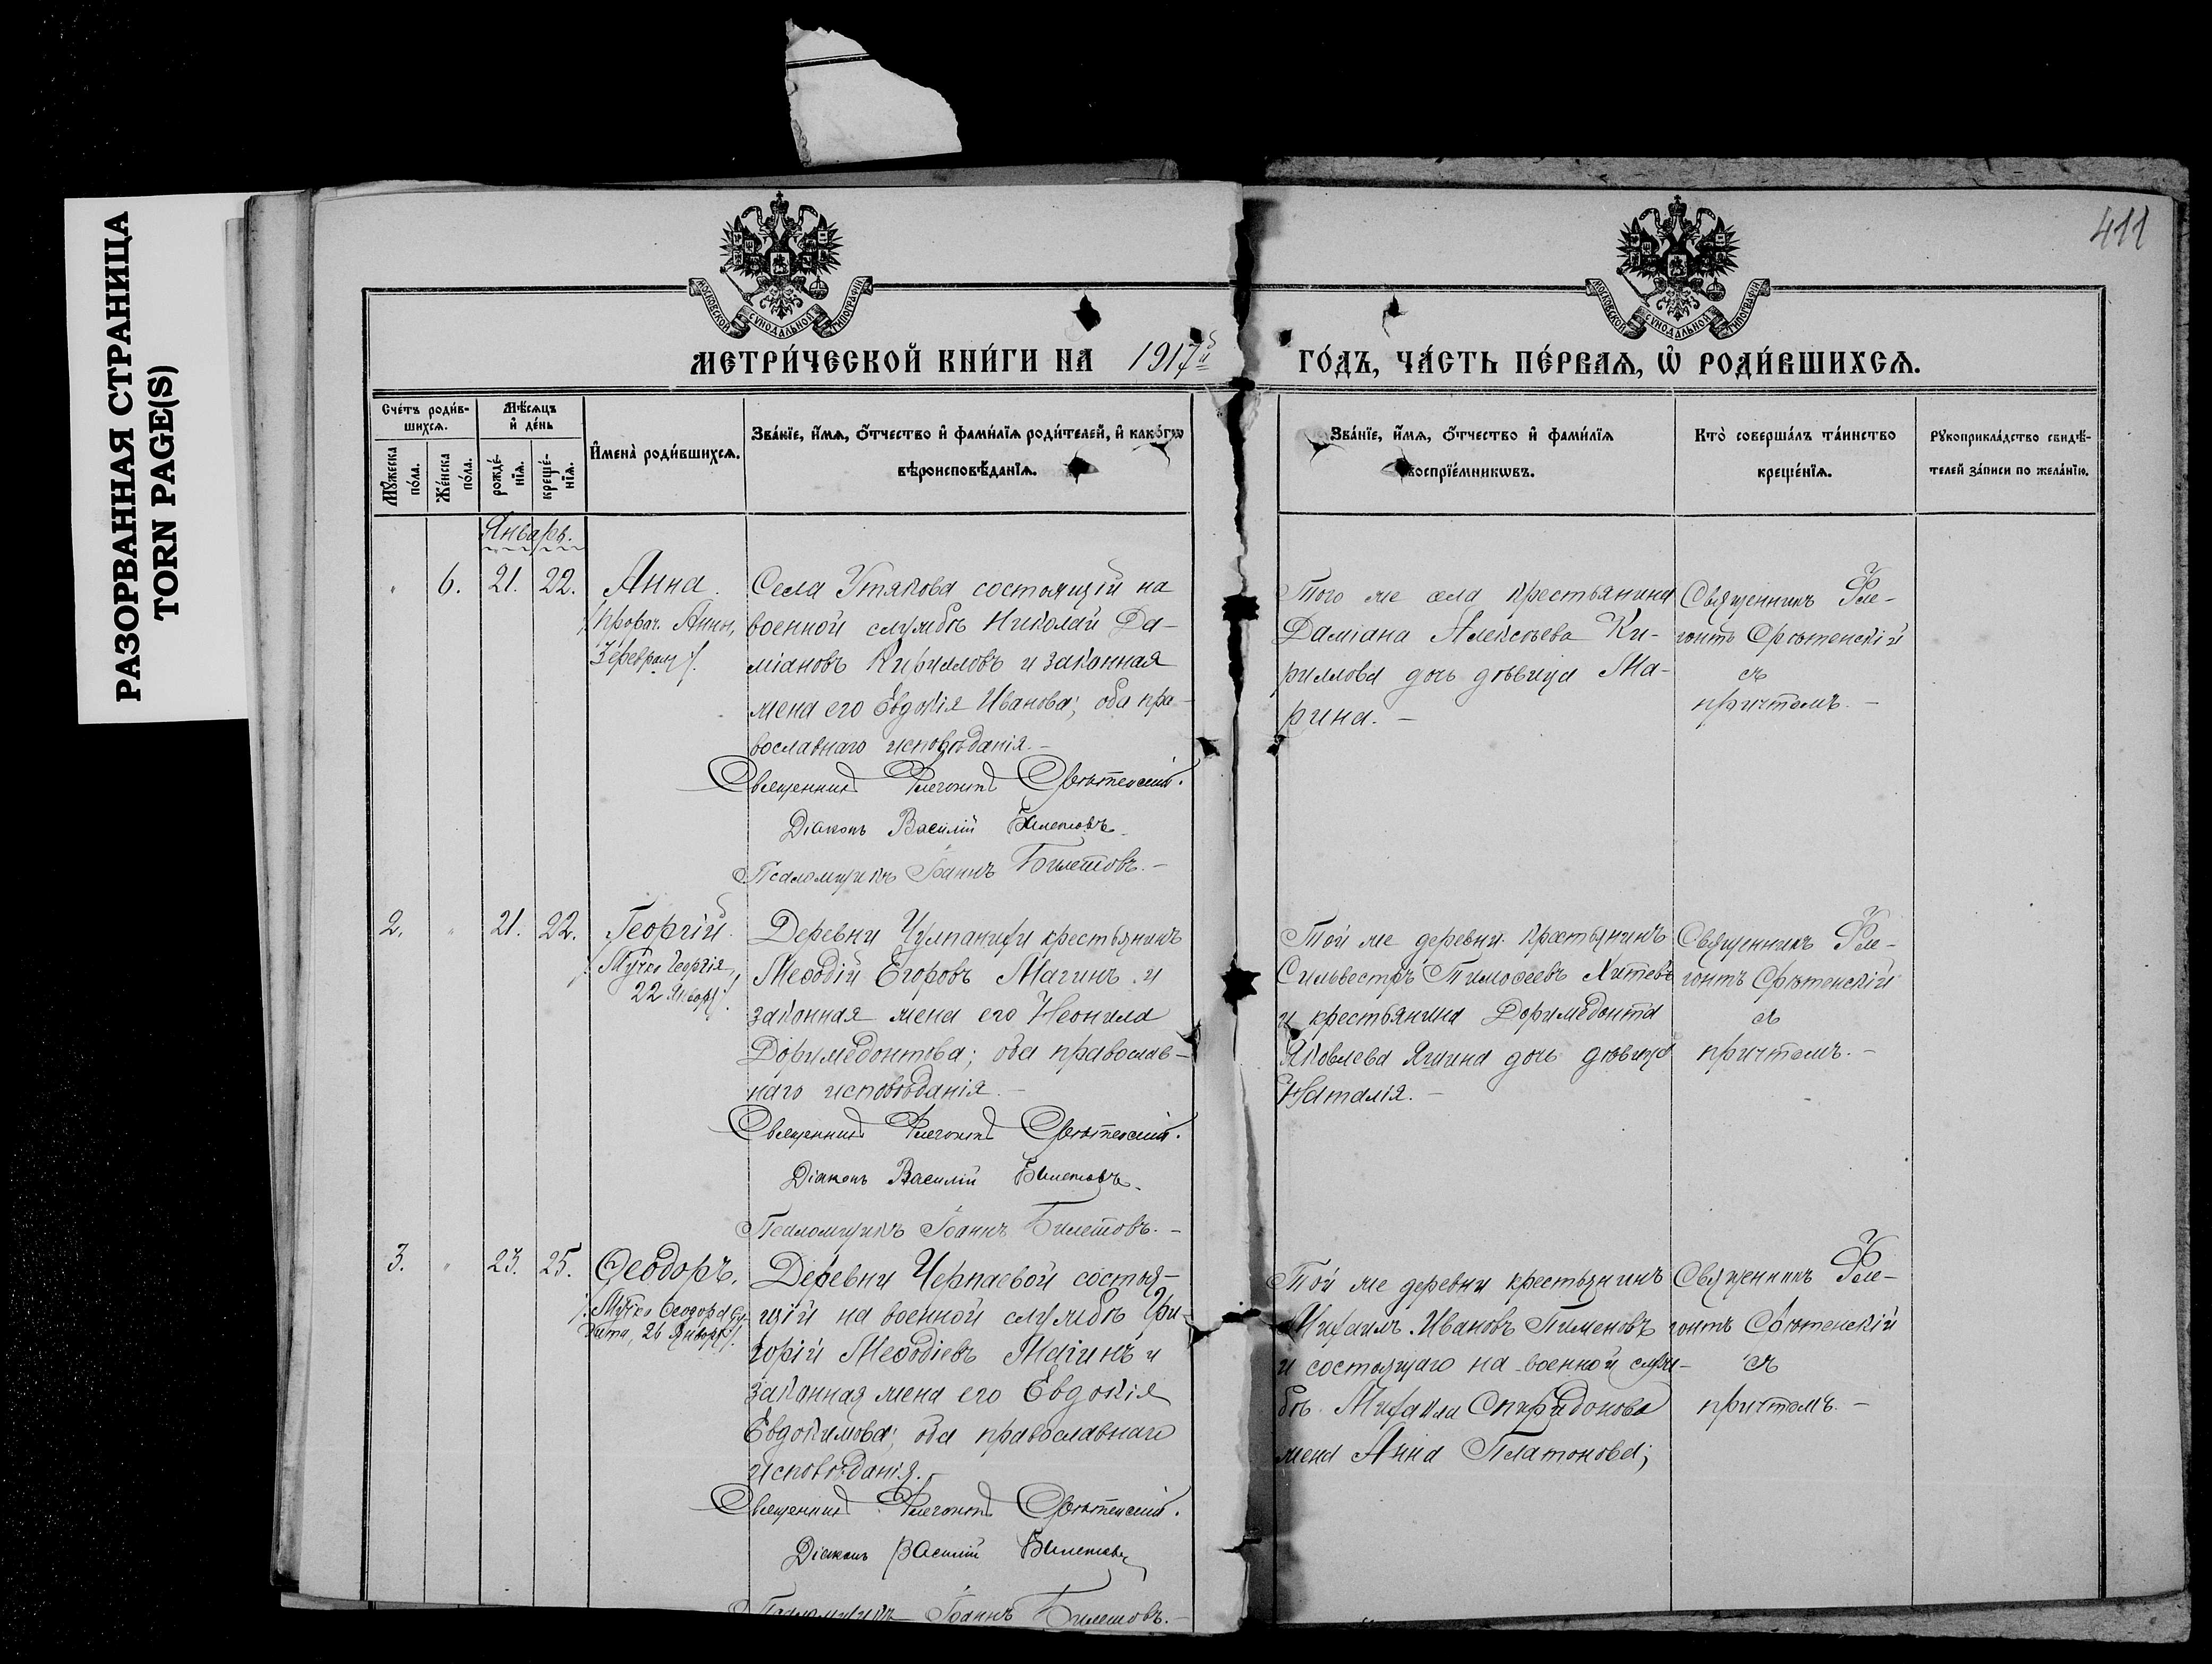 РАЗОРВАННАЯ СТРАНИЦА
TORN PAGE(S)
411
МОСКОВСКОЙ СѴНОДАЛЬНОЙ ТИПОГРАФІИ
МОСКОВСКОЙ СѴНОДАЛЬНОЙ ТИПОГРАФІИ
МЕТРИ́ЧЕСКОЙ КНИ́ГИ НА 1917й
ГО́ДЪ, ЧА́СТЬ ПЕ́РВАЯ, Ѡ҆ РОДИ́ВШИХСѦ.
Сче́тъ роди́в-
шихсѧ.
Мѣ́сѧцъ
и҆ де́нь
Мꙋ́жеска
по́ла.
Же́нска
по́ла.
рожде́-
нїѧ.
креще́-
нїѧ.
И҆мена̀ роди́вшихсѧ.
Зва́нїе, и҆́мѧ, ѻ҆́тчество и҆ фами́лїѧ роди́телей, и҆ како́гѡ
вѣроисповѣ́данїѧ.
Зва́нїе, и҆́мѧ, ѻ҆́тчество и҆ фами́лїѧ
воспрїе́мникѡвъ.
Кто̀ соверша́лъ та́инство
креще́нїѧ.
Рꙋкоприкла́дство свидѣ́-
телей за́писи по жела́нїю.
Январь.
" 6. 21. 22. Анна.
/:Прорoч. Анны,
3 февраля:/.
Села Утякова состоящій на
военной службѣ Николай Да-
міановъ Кирилловъ и законная
жена его Евдокія Иванова; оба пра-
вославнаго исповѣданія.-
Священникъ Флегонтъ Срѣтенскій.
Діаконъ Василій Билетовъ.
Псаломщикъ Іоаннъ Билетовъ.-
Того же села крестьянина
Даміана Алексѣева Ки-
риллова дочь дѣвица Ма-
рина.-
Священникъ Фле-
гонтъ Срѣтенскій
съ
причтомъ.-
2. " 21. 22. Георгій.
/:Муч. Георгія,
22 Января:/.
Деревни Чулпанихи крестьянинъ
Меѳодій Егоровъ Магинъ и
законная жена его Неонила
Доримедонтова; оба православ-
наго исповѣданія.-
Священникъ Флегонтъ Срѣтенскій.
Діаконъ Василій Билетовъ.
Псаломщикъ Іоаннъ Билетовъ.-
Той же деревни крестьянинъ
Сильвестръ Тимоѳеевъ
и крестьянина Доримедонта
Яковлева Яшина дочь дѣвица
Наталія.-
Священникъ Фле-
гонтъ Срѣтенскій
съ
причтомъ.-
3. " 23. 25. Ѳеодоръ.
26 Января:/.
Деревни Черпаевой состоя-
щій на военной службѣ Гри-
горій Меѳодіевъ Магинъ и
законная жена его Евдокія
Евдокимова; оба православнаго
исповѣданія.
Священникъ Флегонтъ Срѣтенскій.
Діаконъ Василій Билетовъ
Псаломщикъ Іоаннъ Билетовъ.-
Той же деревни крестьянинъ
Михаилъ Ивановъ Пименовъ
и состоящаго на военной служ-
бѣ Михаила Спиридонова
жена Анна Платонова;
Священникъ Фле-
гонтъ Срѣтенскій
съ
причтомъ.-